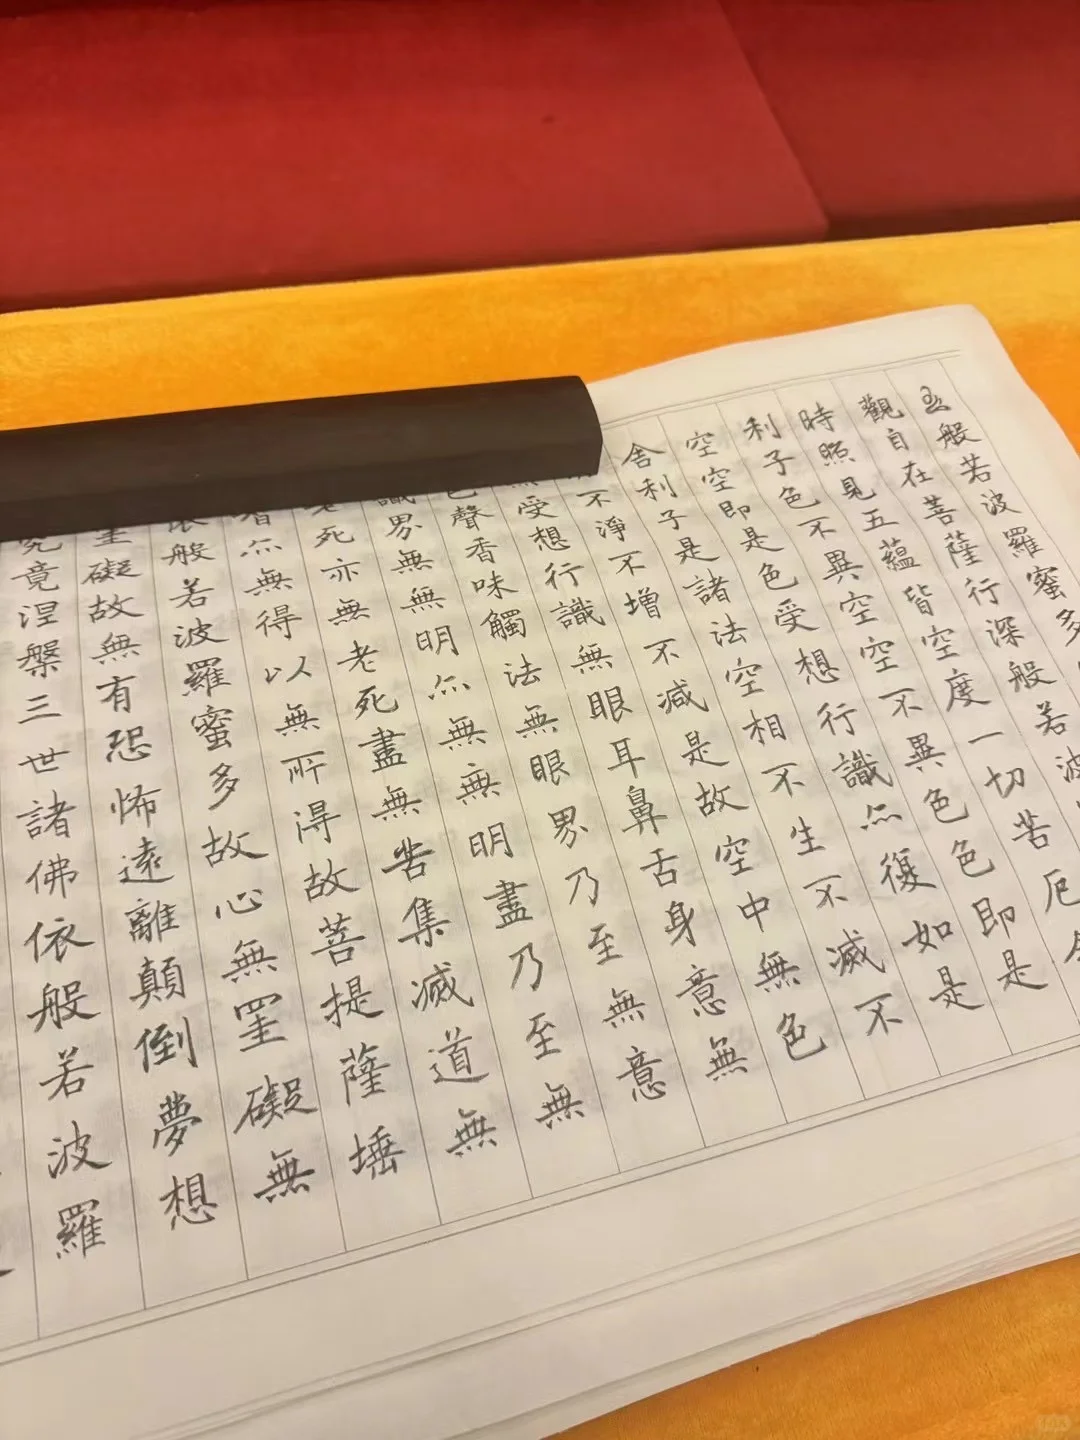 般若波羅蜜多
觀自在菩薩行深般若波
時照見五蘊皆空度一切苦厄
利子色不異空空不異色色即是
空空即是色受想行識亦復如是
舍利子是諸法空相不生不滅不
不淨不增不減是故空中無色
無受想行識無眼耳鼻舌身意無
色聲香味觸法無眼界乃至無意
識界無無明亦無無明盡乃至無
老死亦無老死盡無苦集滅道無
智亦無得以無所得故菩提薩埵
依般若波羅蜜多故心無罣礙無
罣礙故無有恐怖遠離顛倒夢想
究竟涅槃三世諸佛依般若波羅